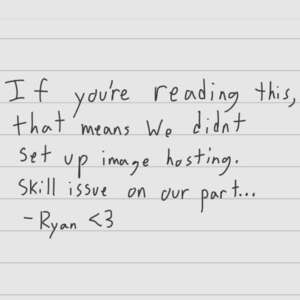 If you're reading this,
that means We didnt
set up image hosting.
Skill issue on our part...
- Ryan <3